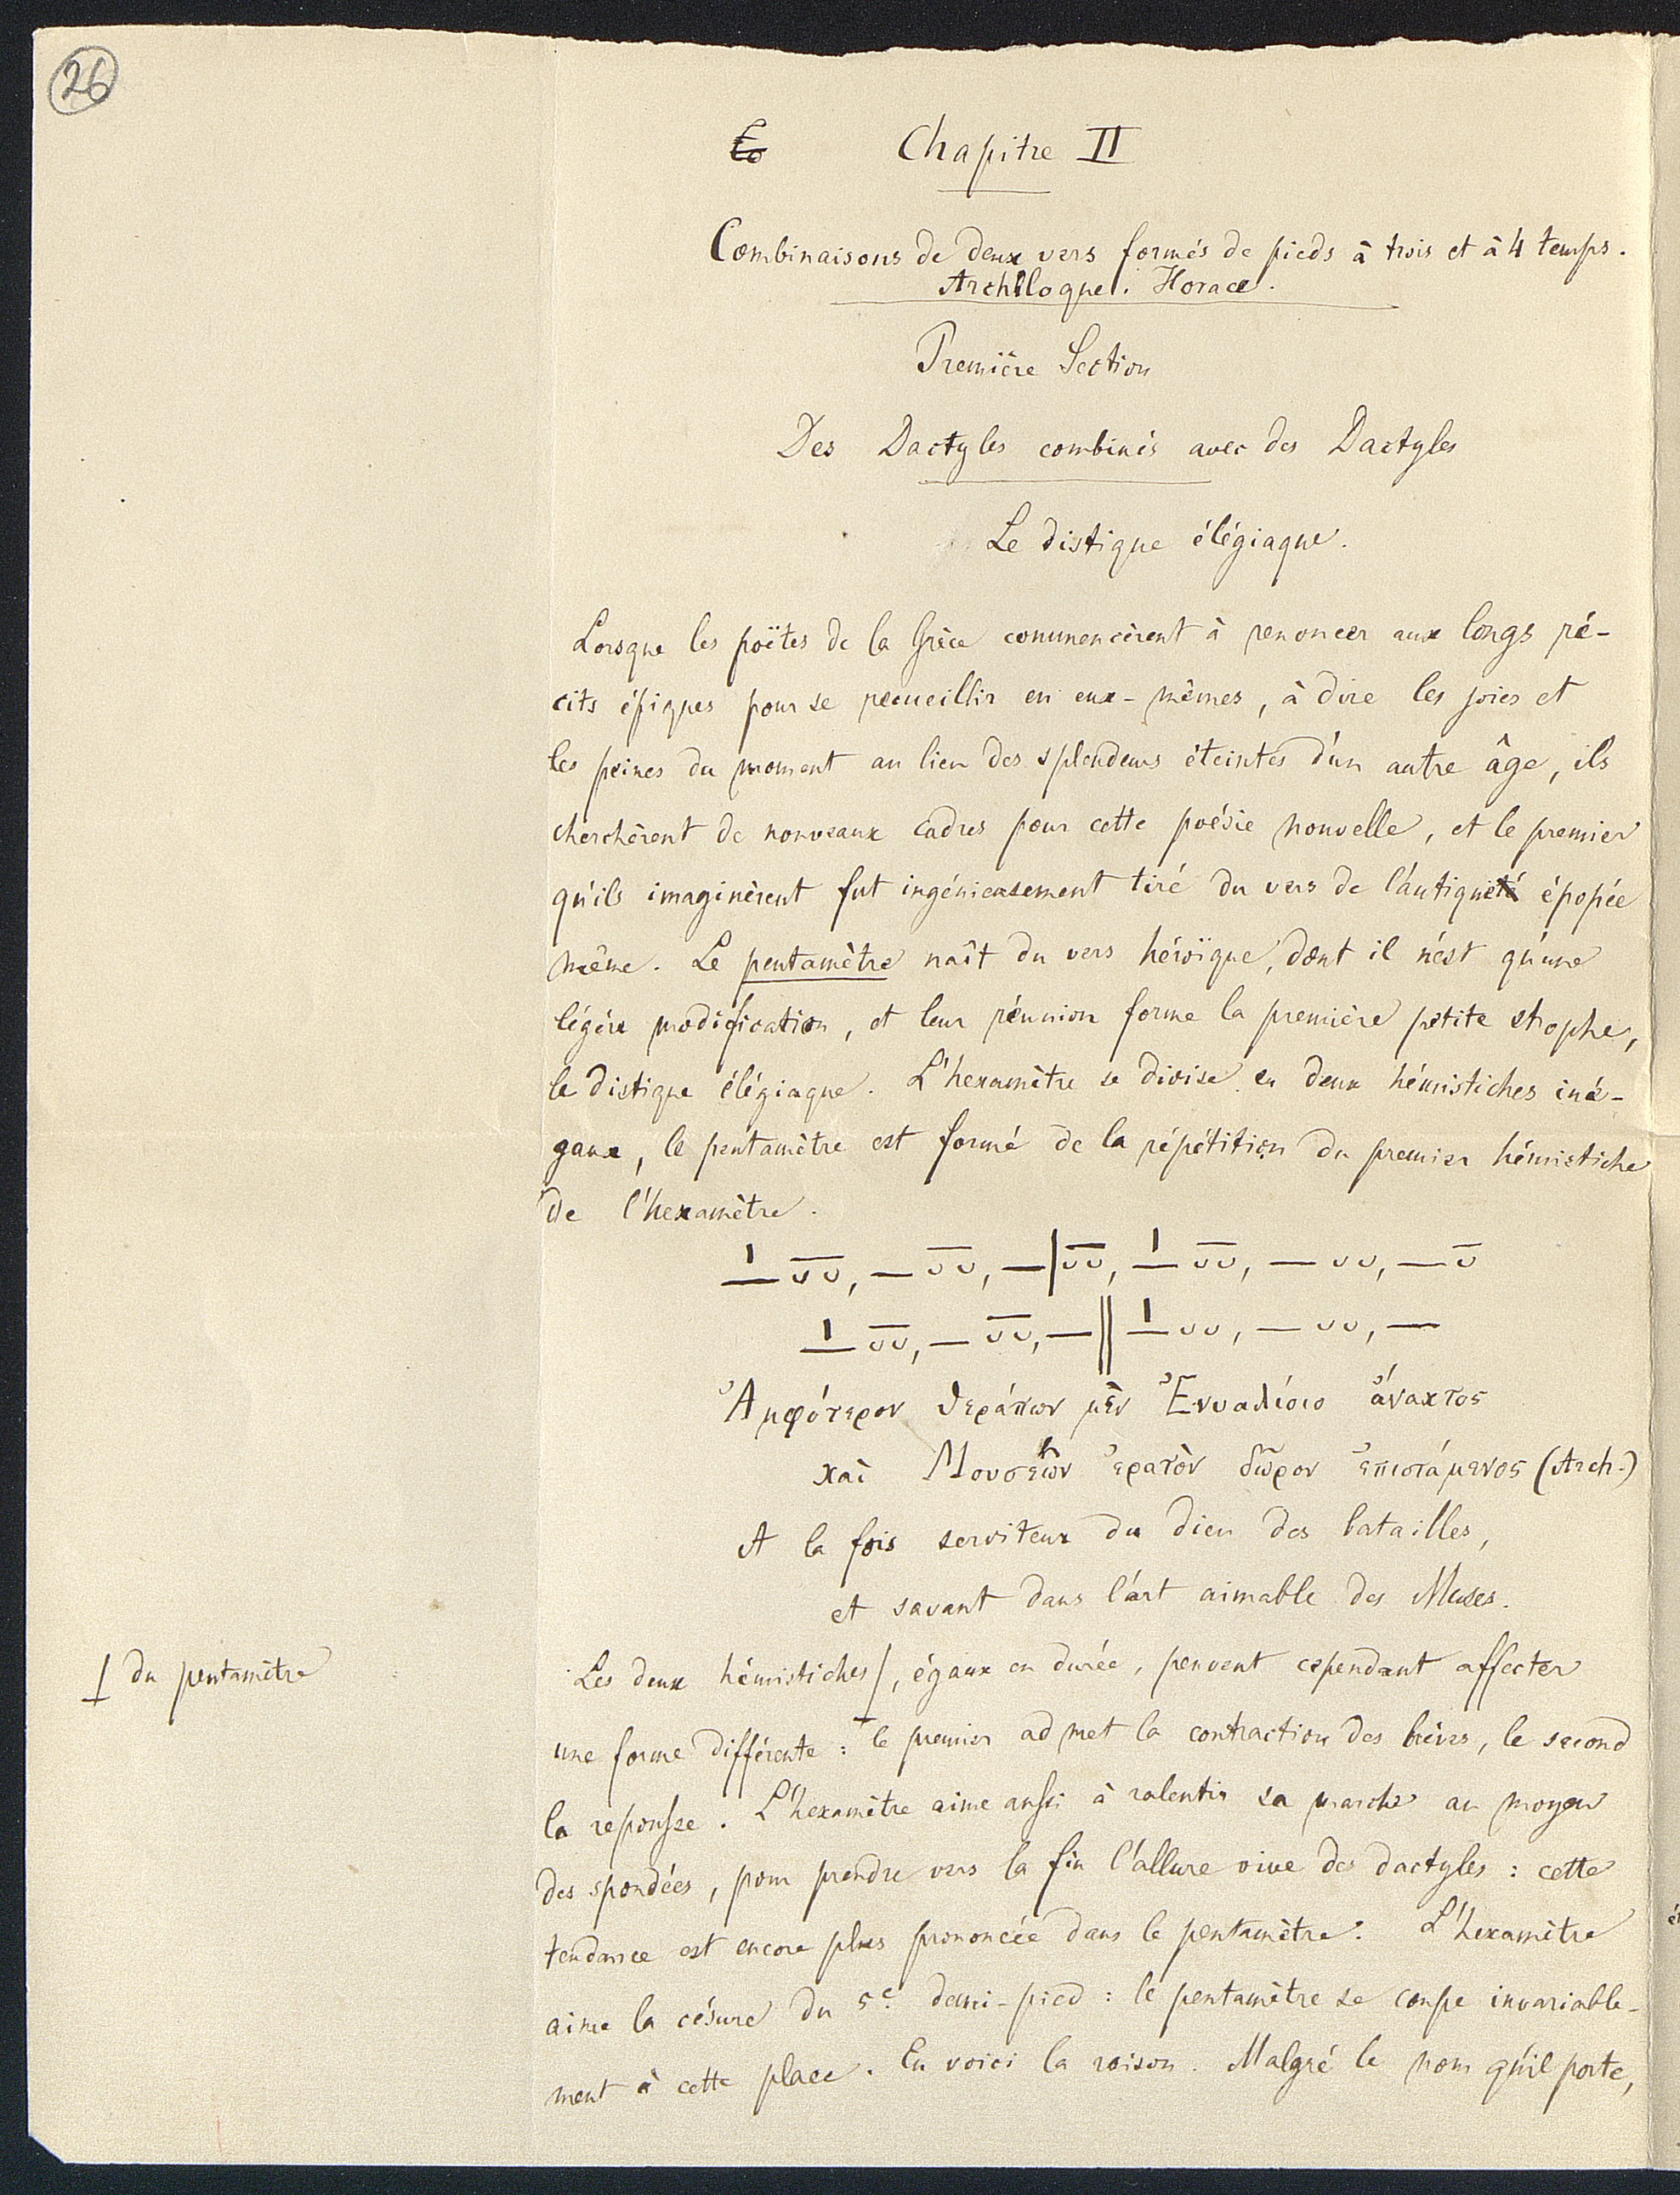 26
Chapitre II
Combinaisons de deux vers formés de pieds à trois et à 4 temps.
Archiloque. Horace.
Première Section
Des Dactyles combinés avec des Dactyles
Le distique élégiaque.
Lorsque les poëtes de la Grèce commencèrent à renoncer aux longs ré-
cits épiques pour se recueillir en eux-mêmes, à dire les joies et
les peines du moment au lieu des splendeurs éteintes d'un autre âge, ils
cherchèrent de nouveaux cadres pour cette poésie nouvelle, et le premier
qu'ils imaginèrent fut ingénieusement tiré du vers de l'antique épopée
même. Le pentamètre naît du vers héroïque, dont il n'est qu'une
légère modification, et leur réunion forme la première petite strophe,
le distique élégiaque. L'hexamètre se divise en deux hémistiches iné-
gaux, le pentamètre est formé de la répétition du premier hémistiche
de l'hexamètre.
— ᴗᴗ, — ᴗᴗ, —|ᴗᴗ, — ᴗᴗ, — ᴗᴗ, — ᴗ
— ᴗᴗ, — ᴗᴗ, —‖— ᴗᴗ, — ᴗᴗ, —
Ἀμφότερον θεράπων μὲν Ἐνυαλίοιο ἄνακτος
καὶ Μουσέων ἐρατὸν δῶρον ἐπιστάμενος (Arch.)
A la fois serviteur du dieu des batailles,
et savant dans l'art aimable des Muses.
du pentamètre
Les deux hémistiches, égaux en durée, peuvent cependant affecter
une forme différente : le premier admet la contraction des brèves, le second
la repousse. L'hexamètre aime aussi à ralentir sa marche au moyen
des spondées, pour prendre vers la fin l'allure vive des dactyles : cette
tendance est encore plus prononcée dans le pentamètre. L'hexamètre
aime la césure du 5e. demi-pied : le pentamètre se coupe invariable-
ment à cette place. En voici la raison. Malgré le nom qu'il porte,